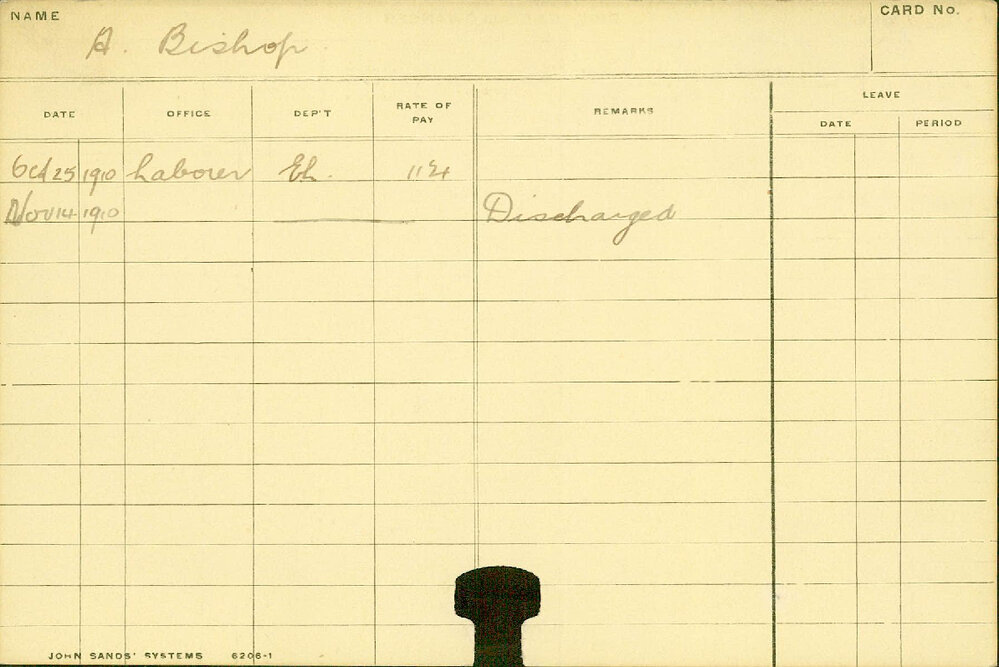 NAME CARD No.
A. Bishop
DATE OFFICE DEP'T RATE OF PAY REMARKS LEAVE
DATE PERIOD
Oct 25 1910 Laborer Eh.
Nov 14 1910 Discharged
JOHN SANDS' SYSTEMS 6206-1